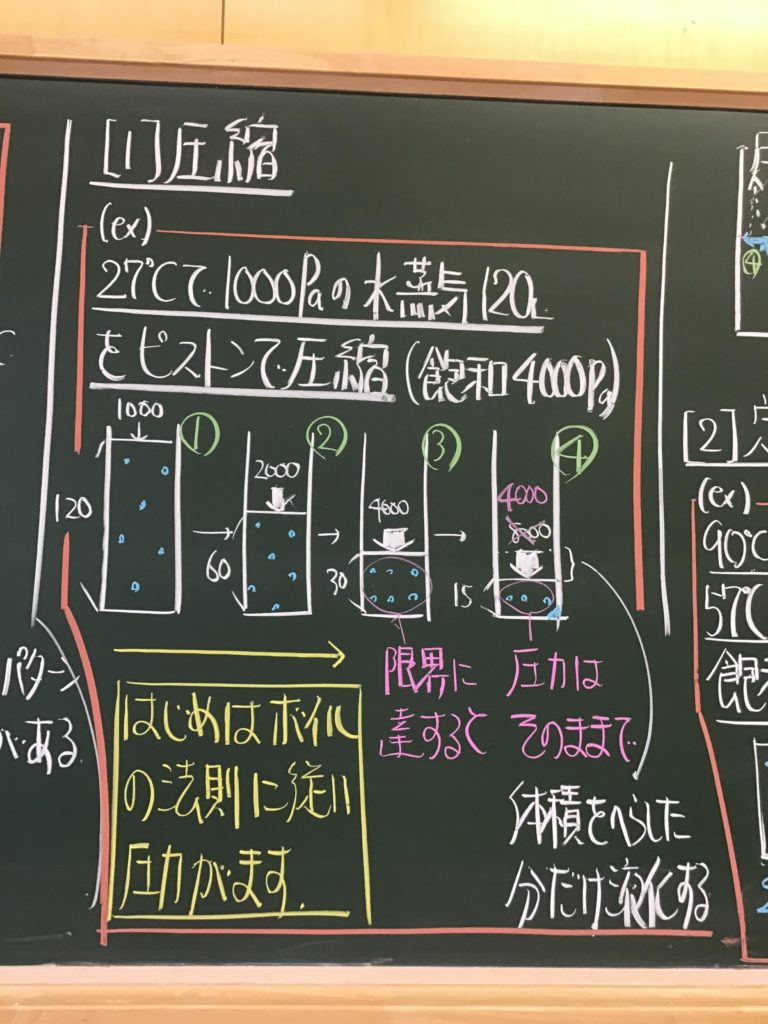 [1]圧縮
(ex)
27℃で1000Paの水蒸気120L
をピストンで圧縮(飽和4000Pa)
1000
①
120
2000
②
60
4000
③
30
4000
8000
④
15
限界に
達すると
圧力は
そのままで
体積をへらした
分だけ液化する
はじめはボイル
の法則に従い
圧力がます.
パターン
がある
④
[2]
(ex)
90℃
57℃
飽和